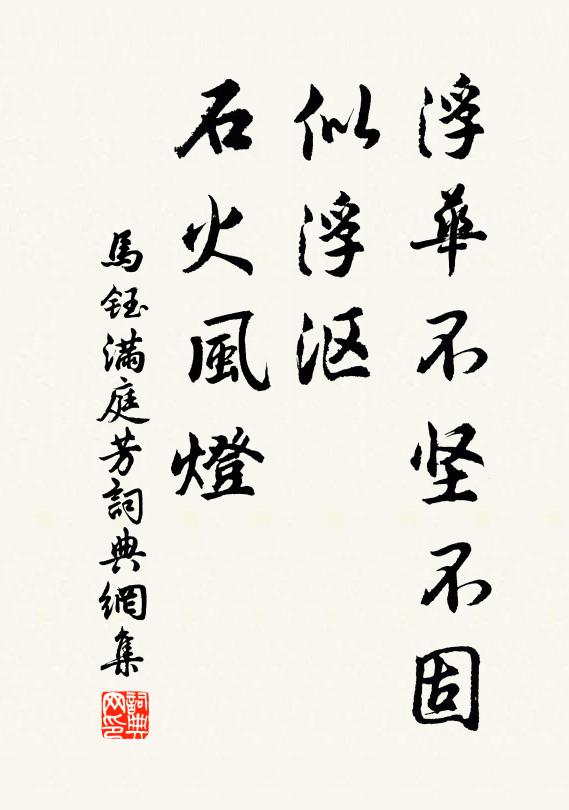 浮華不坚不固
似浮沤
石火風燈
馬鈺满庭芳詞典網集
詞典网印